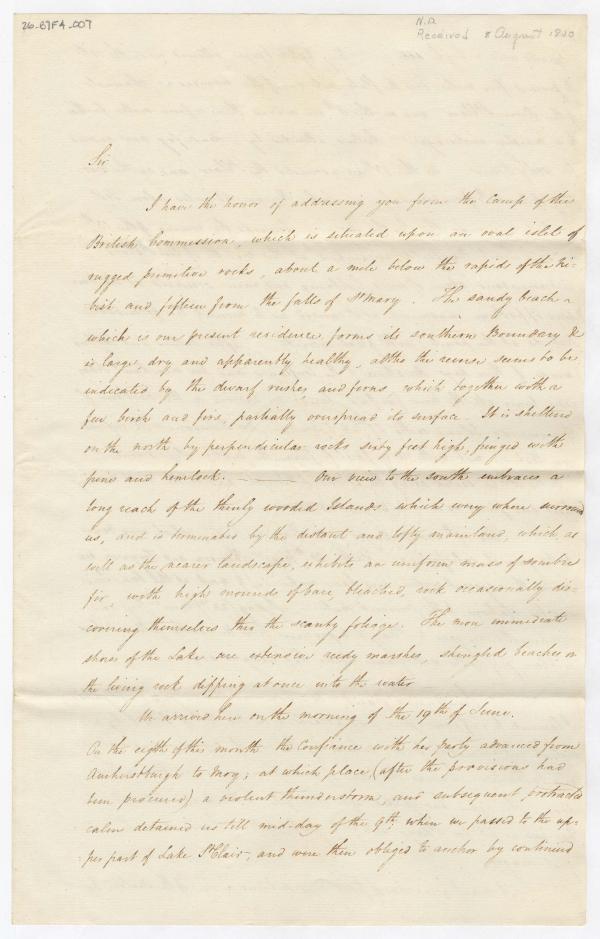 26-B7F4-007
N.D.
Received 8 August 1820
Sir
I have the honor of addressing you from the Camp of the
British Commission, which is situated upon an oval islet of
rugged primitive rocks, about a mile below the rapids of the Ni-
bish and fifteen from the falls of St Mary. The sandy beach
which is our present residence forms its southern Boundary &
is large, dry and apparently healthy, altho the reverse seems to be
indicated by the dwarf rushes, and ferns which together with a
few birch and firs, partially overspread its surface. It is sheltered
on the north by perpendicular rocks sixty feet high, fringed with
pine and hemlock. — Our view to the south embraces a
long reach of the thinly wooded Islands which every where surround
us, and is terminated by the distant and lofty mainland, which as
well as the nearer landscape, exhibits an uniform mass of sombre
fir, with high mounds of bare, bleached, rock occasionally dis-
covering themselves thro the scanty foliage. The more immediate
shores of the Lake are extensive reedy marshes, shingled beaches or
the living rock dipping at once into the water
We arrived here on the morning of the 19th of June.
On the eighth of this month the Confiance with her party advanced from
Amherstburgh to Moy; at which place (after the provisions had
been procured) a violent thunderstorm, and subsequent protracted
calm detained us till mid-day of the 9th, when we passed to the up-
per part of Lake St Clair, and were then obliged to anchor by continued